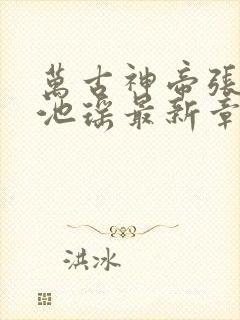 萬古神帝張
池瑤最新章
洪冰